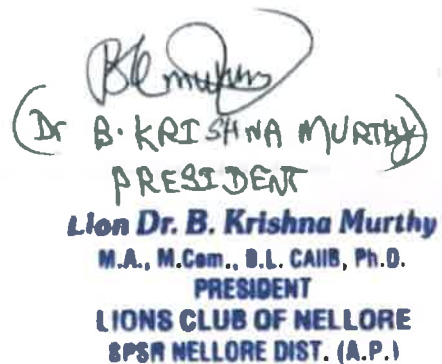 BKmurthy
(Dr B. KRISHNA MURTHY)
PRESIDENT
Lion Dr. B. Krishna Murthy
M.A., M.Com., B.L. CAIIB, Ph.D.
PRESIDENT
LIONS CLUB OF NELLORE
SPSR NELLORE DIST. (A.P.)